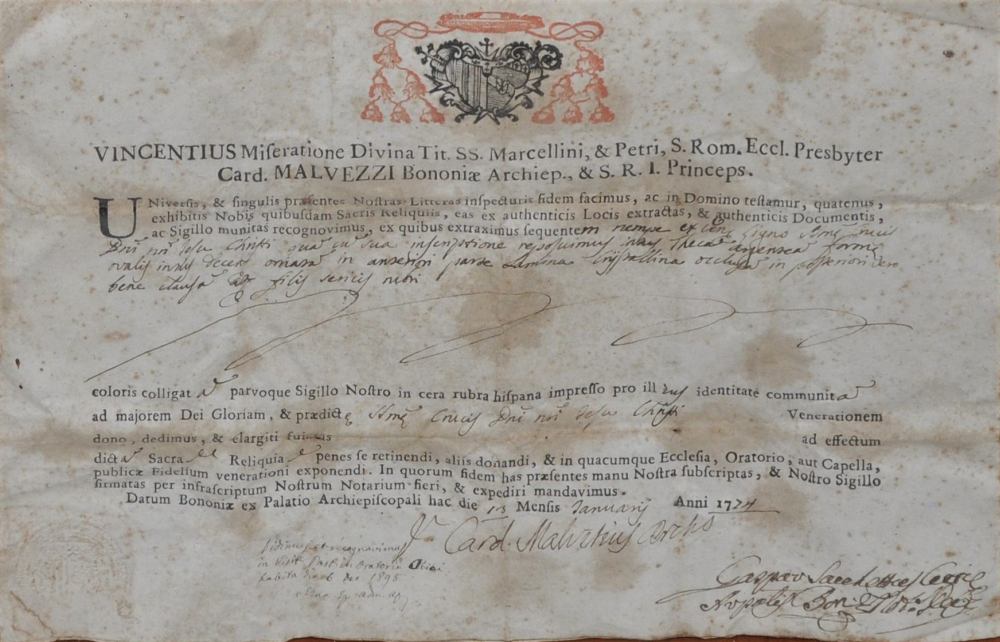 VINCENTIUS Miſeratione Divina Tit. SS. Marcellini, & Petri, S. Rom. Eccl. Presbyter
Card. MALVEZZI Bononiæ Archiep., & S. R. I. Princeps.
UNiverſis, & ſingulis præſentes Noſtras Litteras inſpecturis fidem facimus, ac in Domino teſtamur, quatenus,
exhibitis Nobis quibuſdam Sacris Reliquiis, eas ex authenticis Locis extractas, & authenticis Documentis,
ac Sigillo munitas recognovimus, ex quibus extraximus ſequentem nempe ex Ligno Smæ Crucis
Dñi nři Jesu Christi quam cum sua inscriptione reposuimus intus Thecam argenteam formæ
ovalis intus decenter ornatam in anteriori parte Lamina Crystallina occlusam in posteriori vero
bene clausam ac filis sericis rubri
coloris colligatam parvoque Sigillo Noſtro in cera rubra hiſpana impreſſo pro illius identitate communitam
ad majorem Dei Gloriam, & prædictę Smę Crucis Dñi nři Jesu Christi Venerationem
dono, dedimus, & elargiti fuimus ad effectum
dictam Sacram Reliquiam penes ſe retinendi, aliis donandi, & in quacumque Eccleſia, Oratorio, aut Capella,
publicæ Fidelium venerationi exponendi. In quorum fidem has præſentes manu Noſtra ſubſcriptas, & Noſtro Sigillo
firmatas per infraſcriptum Noſtrum Notarium fieri, & expediri mandavimus.
Datum Bononiæ ex Palatio Archiepiſcopali hac die 13 Menſis Januarij Anni 1774
Card. Malvetius Archõ
Vidimus et recognovimus
in Visit. Past. Oratorii
habita 1895
Gaspar Sacchettus